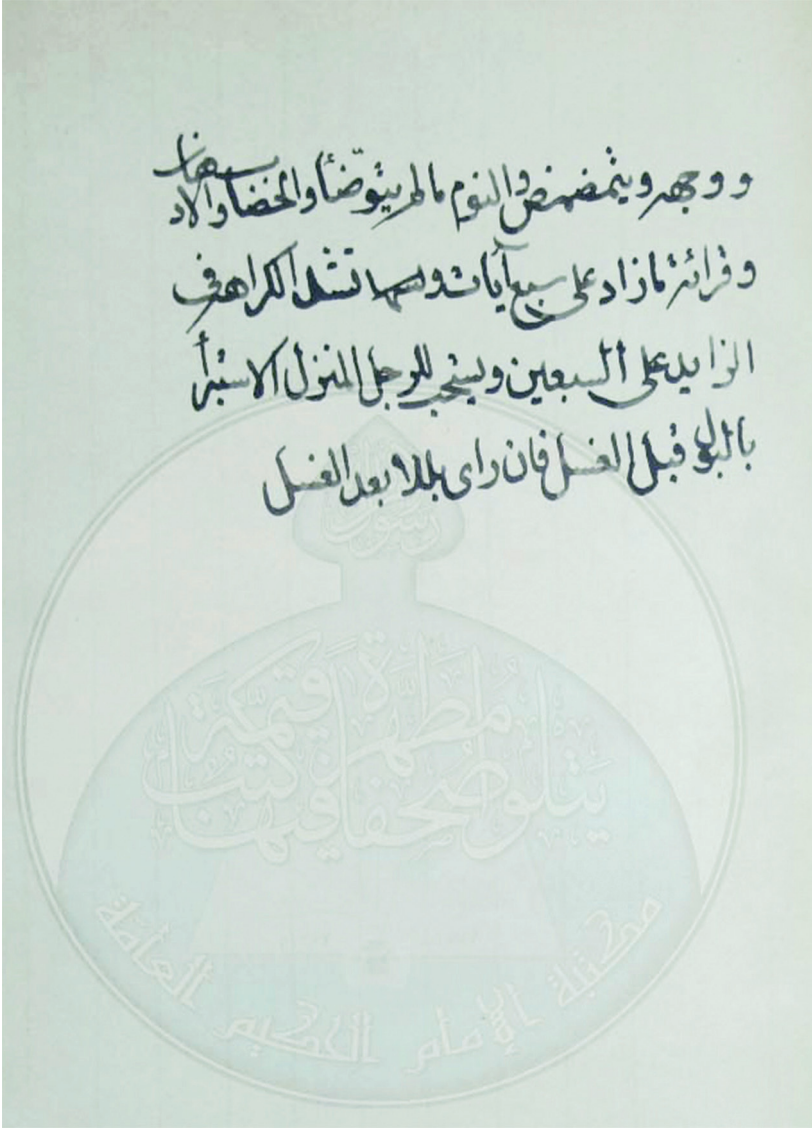 ووجهه ويتمضمض والنوم مالم يتوضأ والخضاب والادهان
وقرائة مازاد على سبع آيات و تشتد الكراهة في
الزايد على السبعين ويستحب للرجل المنزل الاستبرأ
بالبول قبل الغسل فان راى بللا بعد الغسل
رسول
يتلو صحفا مطهرة فيها كتب قيمة
مكتبة الإمام الحكيم العامة